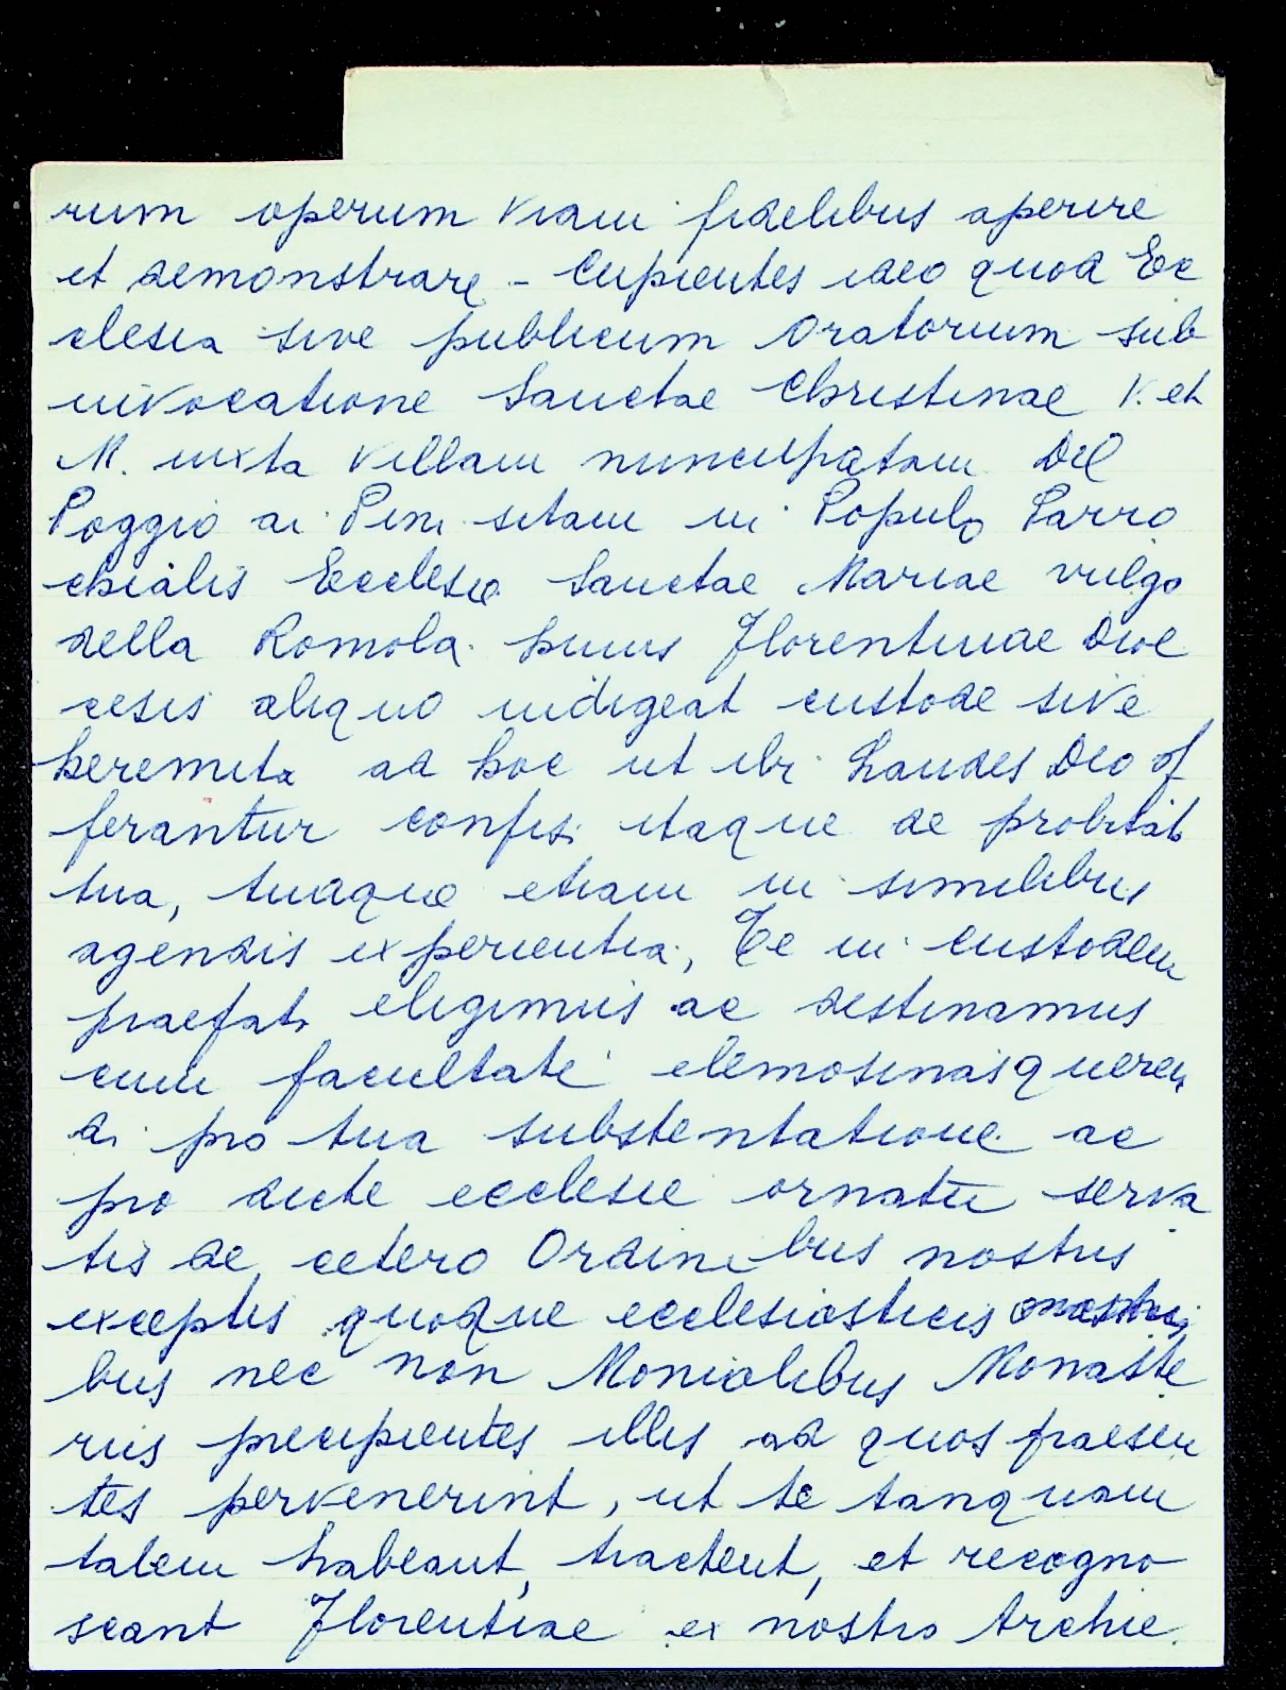 rum operum viam fidelibus aperire
et demonstrare - Cupientes ideo quod Ec
clesia sive publicum Oratorium sub
invocatione Sanctae Christinae V. et
M. iuxta Villam nuncupatam Del
Poggio ai Pini sitam in Populo Parro
chialis Ecclesie Sanctae Mariae vulgo
della Romola huius Florentinae Dioe
cesis aliquo indigeat custode sive
heremita ad hoc ut ibi Laudes Deo of
ferantur confisi itaque de probitat
tua, tuaque etiam in similibus
agendis experientia, Te in custodem
praefati eligimus ac destinamus
cum facultate elemosinas queren
di pro tua substentatione ac
pro dicte ecclesie ornatu serva
tis de cetero Ordinibus nostris
exceptis quoque ecclesiasticis
bus nec non Monialibus Monaste
riis precipientes illis ad quos praesen
tes pervenerint, ut te tanquam
talem habeant, tractent, et recogno
scant Florentiae ex nostro Archie.